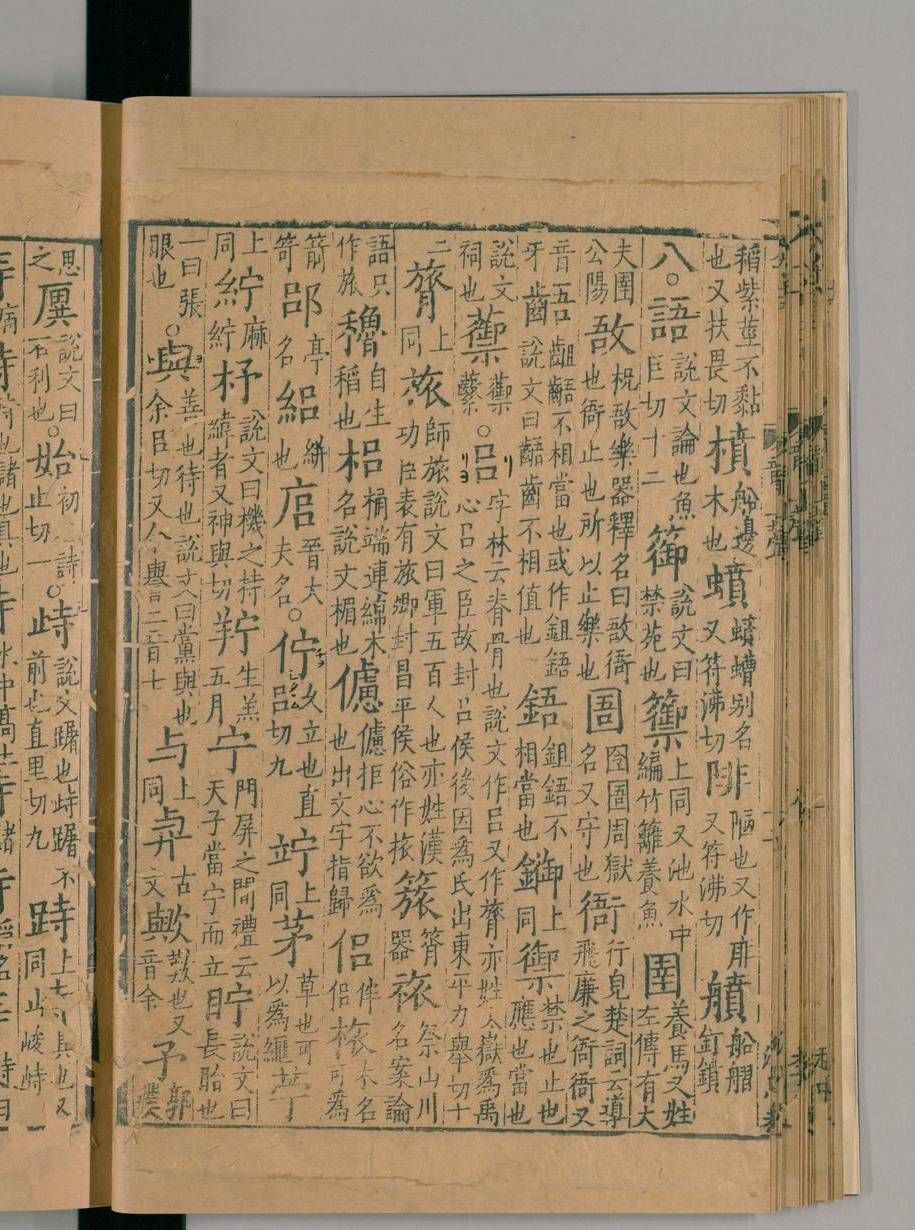 稻紫莖不黏也又扶畏切橨船邊木也蟦蠐螬別名又符沸切陫陋也又作厞又符沸切䑔船艒釘鎖
八○語說文論也魚巨切十二篽說文曰禁苑也籞上同又池水中編竹籬養魚圉養馬又姓左傳有大
夫圉公陽敔柷敔樂器釋名曰敔衙也衙止也所以止樂也圄囹圄周獄名又守也衙行皃楚詞云導飛廉之衙衙又
音吾牙齬齟齬不相當也或作鉏鋙說文曰齬齒不相值也鋙鉏鋙不相當也鋤上同禦禁也止也應也當也
說文祠也蘌蘌蘩○呂字林云脊骨也說文作呂又作膂亦姓太嶽爲禹心呂之臣故封呂侯後因爲氏出東平力舉切十
二膂上同旅師旅說文曰軍五百人也亦姓漢功臣表有旅卿封昌平侯俗作簇筥器祣祭山川名案論
語只作旅穭自生稻也梠桷端連綿木名說文楣也儢儢拒心不欲爲也出文字指歸侶伴侶木名可爲
箭笴郘亭名絽絣也㡯晉大夫名○佇久立也直呂切九竚上同苧草也可以爲繩
上同紵麻紵杼說文曰機之持緯者又神與切羜生羔五月宁門屏之間禮云天子當宁而立眝說文曰長眙也
一曰張眼也○與善也待也說文曰黨與也余呂切又余譽二音七与上同㒜古文歟歎也又音余予郭璞
思之說文曰不利也○始初詩止切一○峙說文躇也峙躇不前也直里切九跱上同峻峙